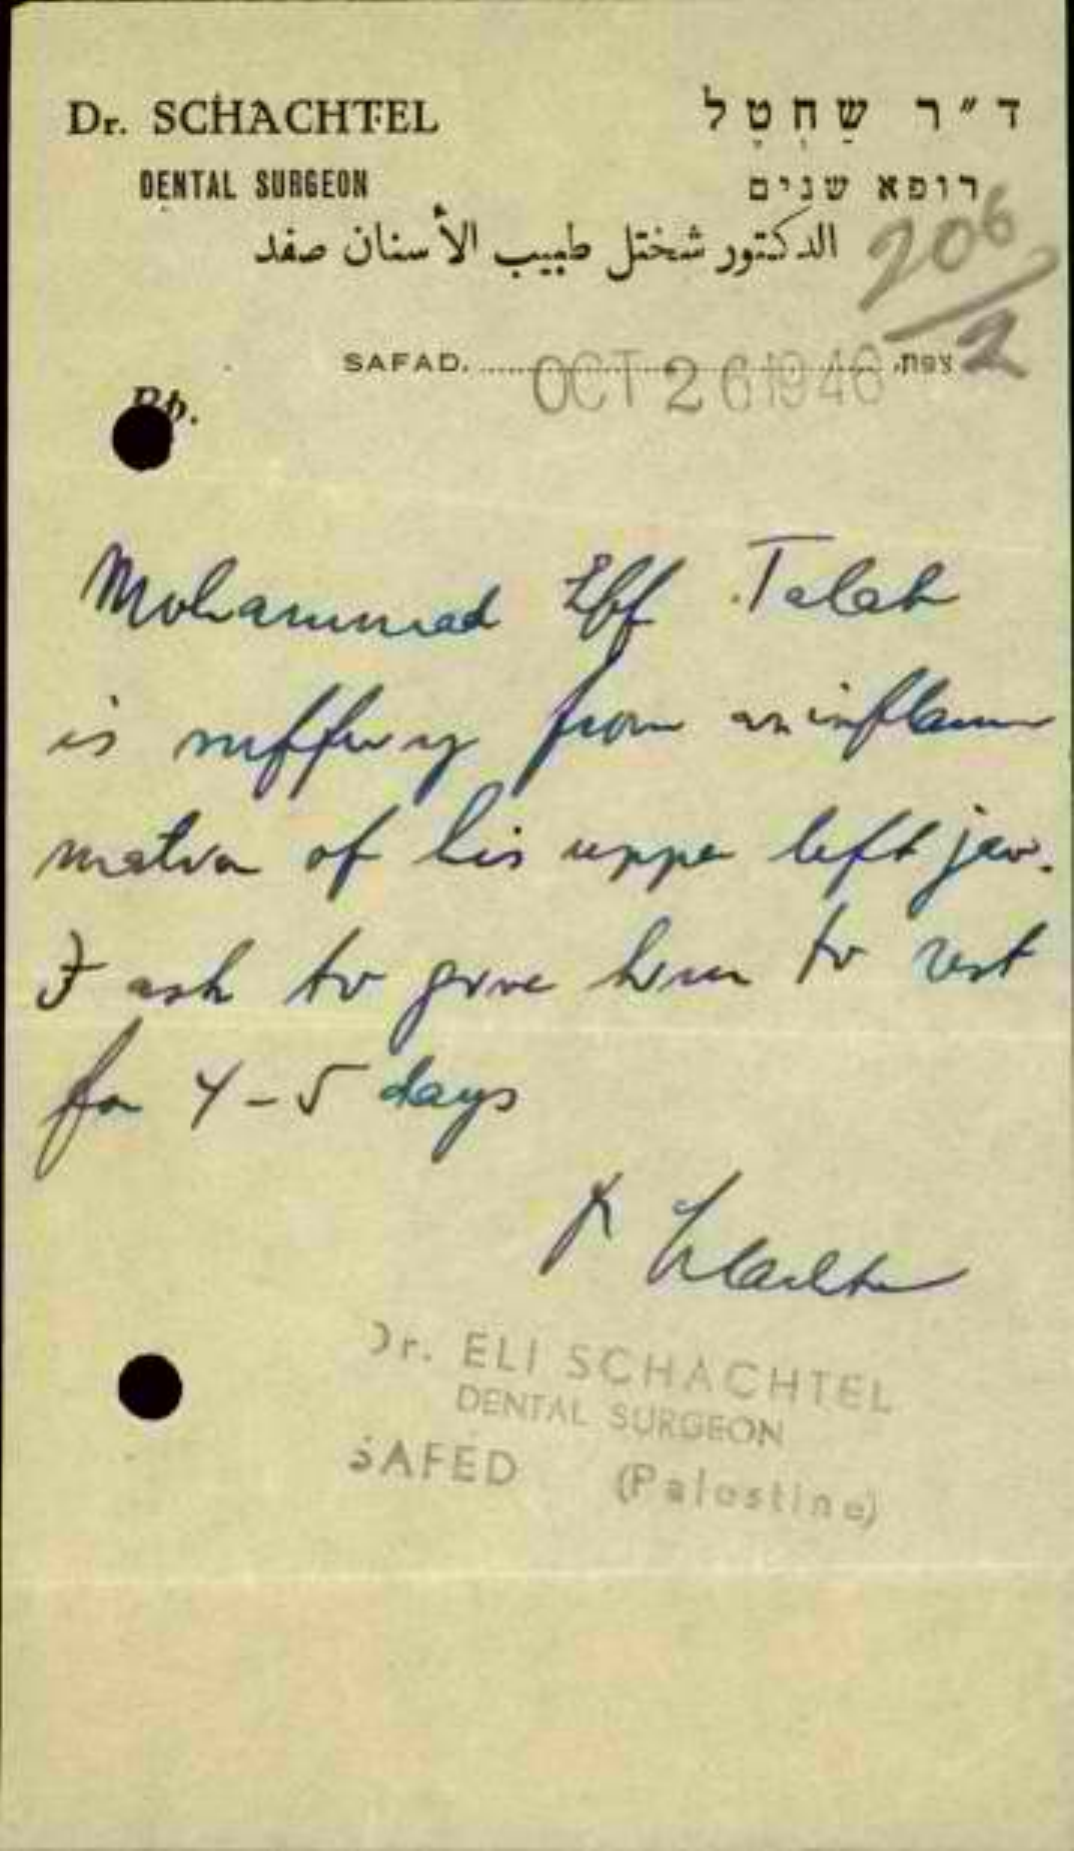 Dr. SCHACHTEL
ד״ר שַׁחְטֶל
DENTAL SURGEON
רופא שנים
الدكتور شختل طبيب الأسنان صفد
206/2
SAFAD. OCT 26 1946 צפת,
Rp.
Mohammad Eff Talab
is suffering from an inflam
mation of his upper left jaw.
I ask to give him to rest
for 4-5 days
Dr Schachtel
Dr. ELI SCHACHTEL
DENTAL SURGEON
SAFED (Palestine)